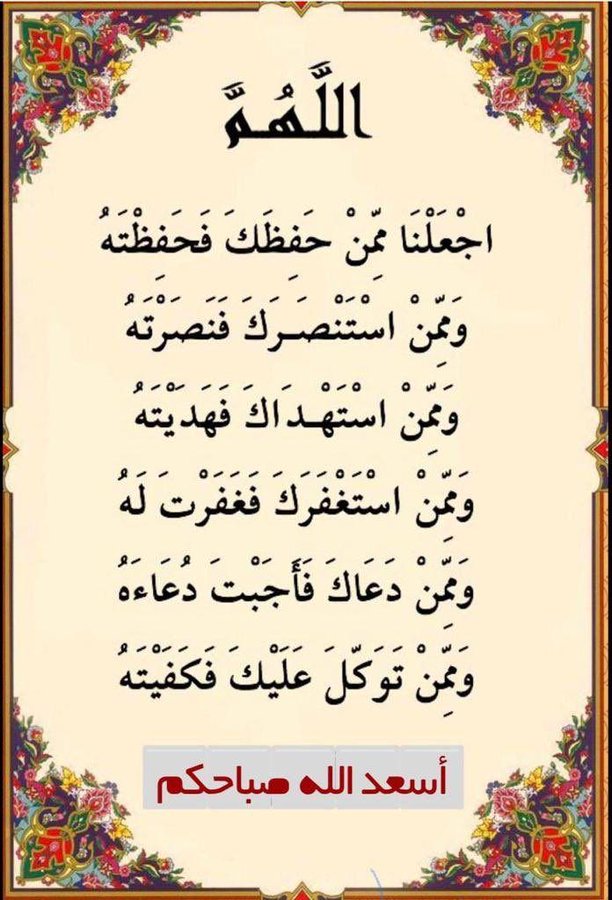 اللَّهُمَّ
اجْعَلْنَا مِمِّنْ حَفِظَكَ فَحَفِظْتَهُ
وَمِمِّنْ اسْتَنْصَـرَكَ فَنَصَرْتَهُ
وَمِمِّنْ اسْتَهْـدَاكَ فَهَدَيْتَهُ
وَمِمِّنْ اسْتَغْفَرَكَ فَغَفَرْتَ لَهُ
وَمِمِّنْ دَعَاكَ فَأَجَبْتَ دُعَاءَهُ
وَمِمِّنْ تَوَكّلَ عَلَيْكَ فَكَفَيْتَهُ
أسعد الله صباحكم